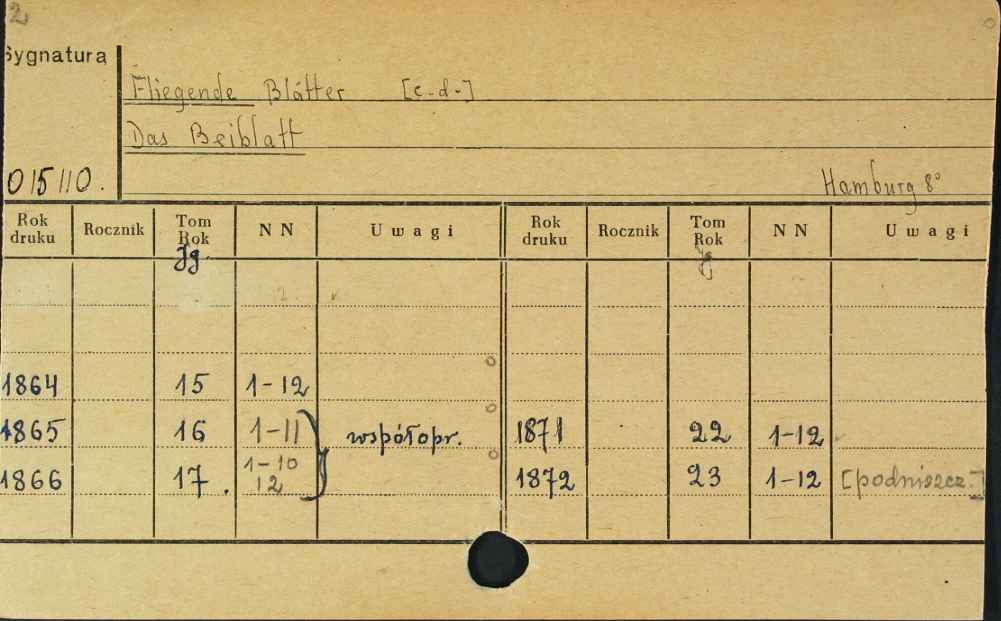 2
Sygnatura
Fliegende Blätter [c.d.]
Das Beiblatt
015110.
Hamburg 8°
Rok druku Rocznik Tom Rok NN Uwagi Rok druku Rocznik Tom Rok NN Uwagi
Jg. Jg
1864 15 1-12
1865 16 1-11 współopr. 1871 22 1-12
1866 17. 1-10 12 1872 23 1-12 [podniszcz.]